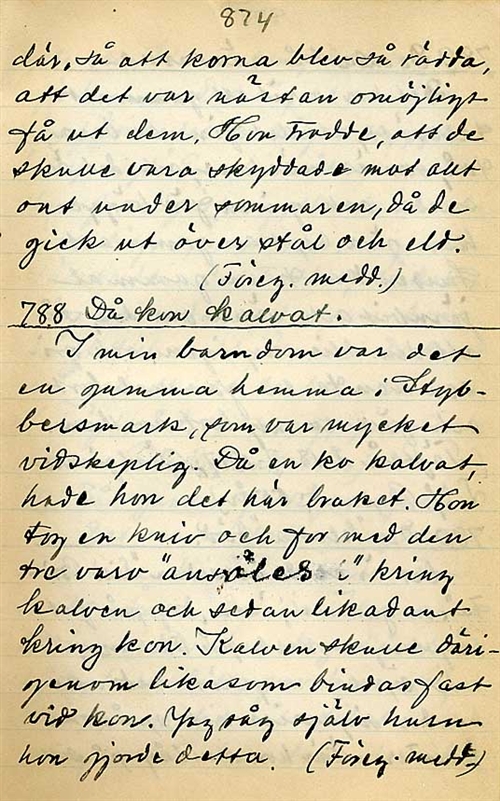 874
där, så att korna blev så rädda,
att det var nästan omöjligt
få ut dem. Hon trodde, att de
skulle vara skyddade mot allt
ont under sommaren, då de
gick ut över stål och eld.
(Föreg. medd.)
788 Då kon kalvat.
I min barndom var det
en gumma hemma i Styb-
bersmark, som var mycket
vidskeplig. Då en ko kalvat,
hade hon det här bruket. Hon
tog en kniv och for med den
tre varv "ansöles i" kring
kalven och sedan likadant
kring kon. Kalven skulle däri-
genom likasom bindas fast
vid kon. Jag såg själv hurn
hon gjorde detta. (Föreg. medd.)